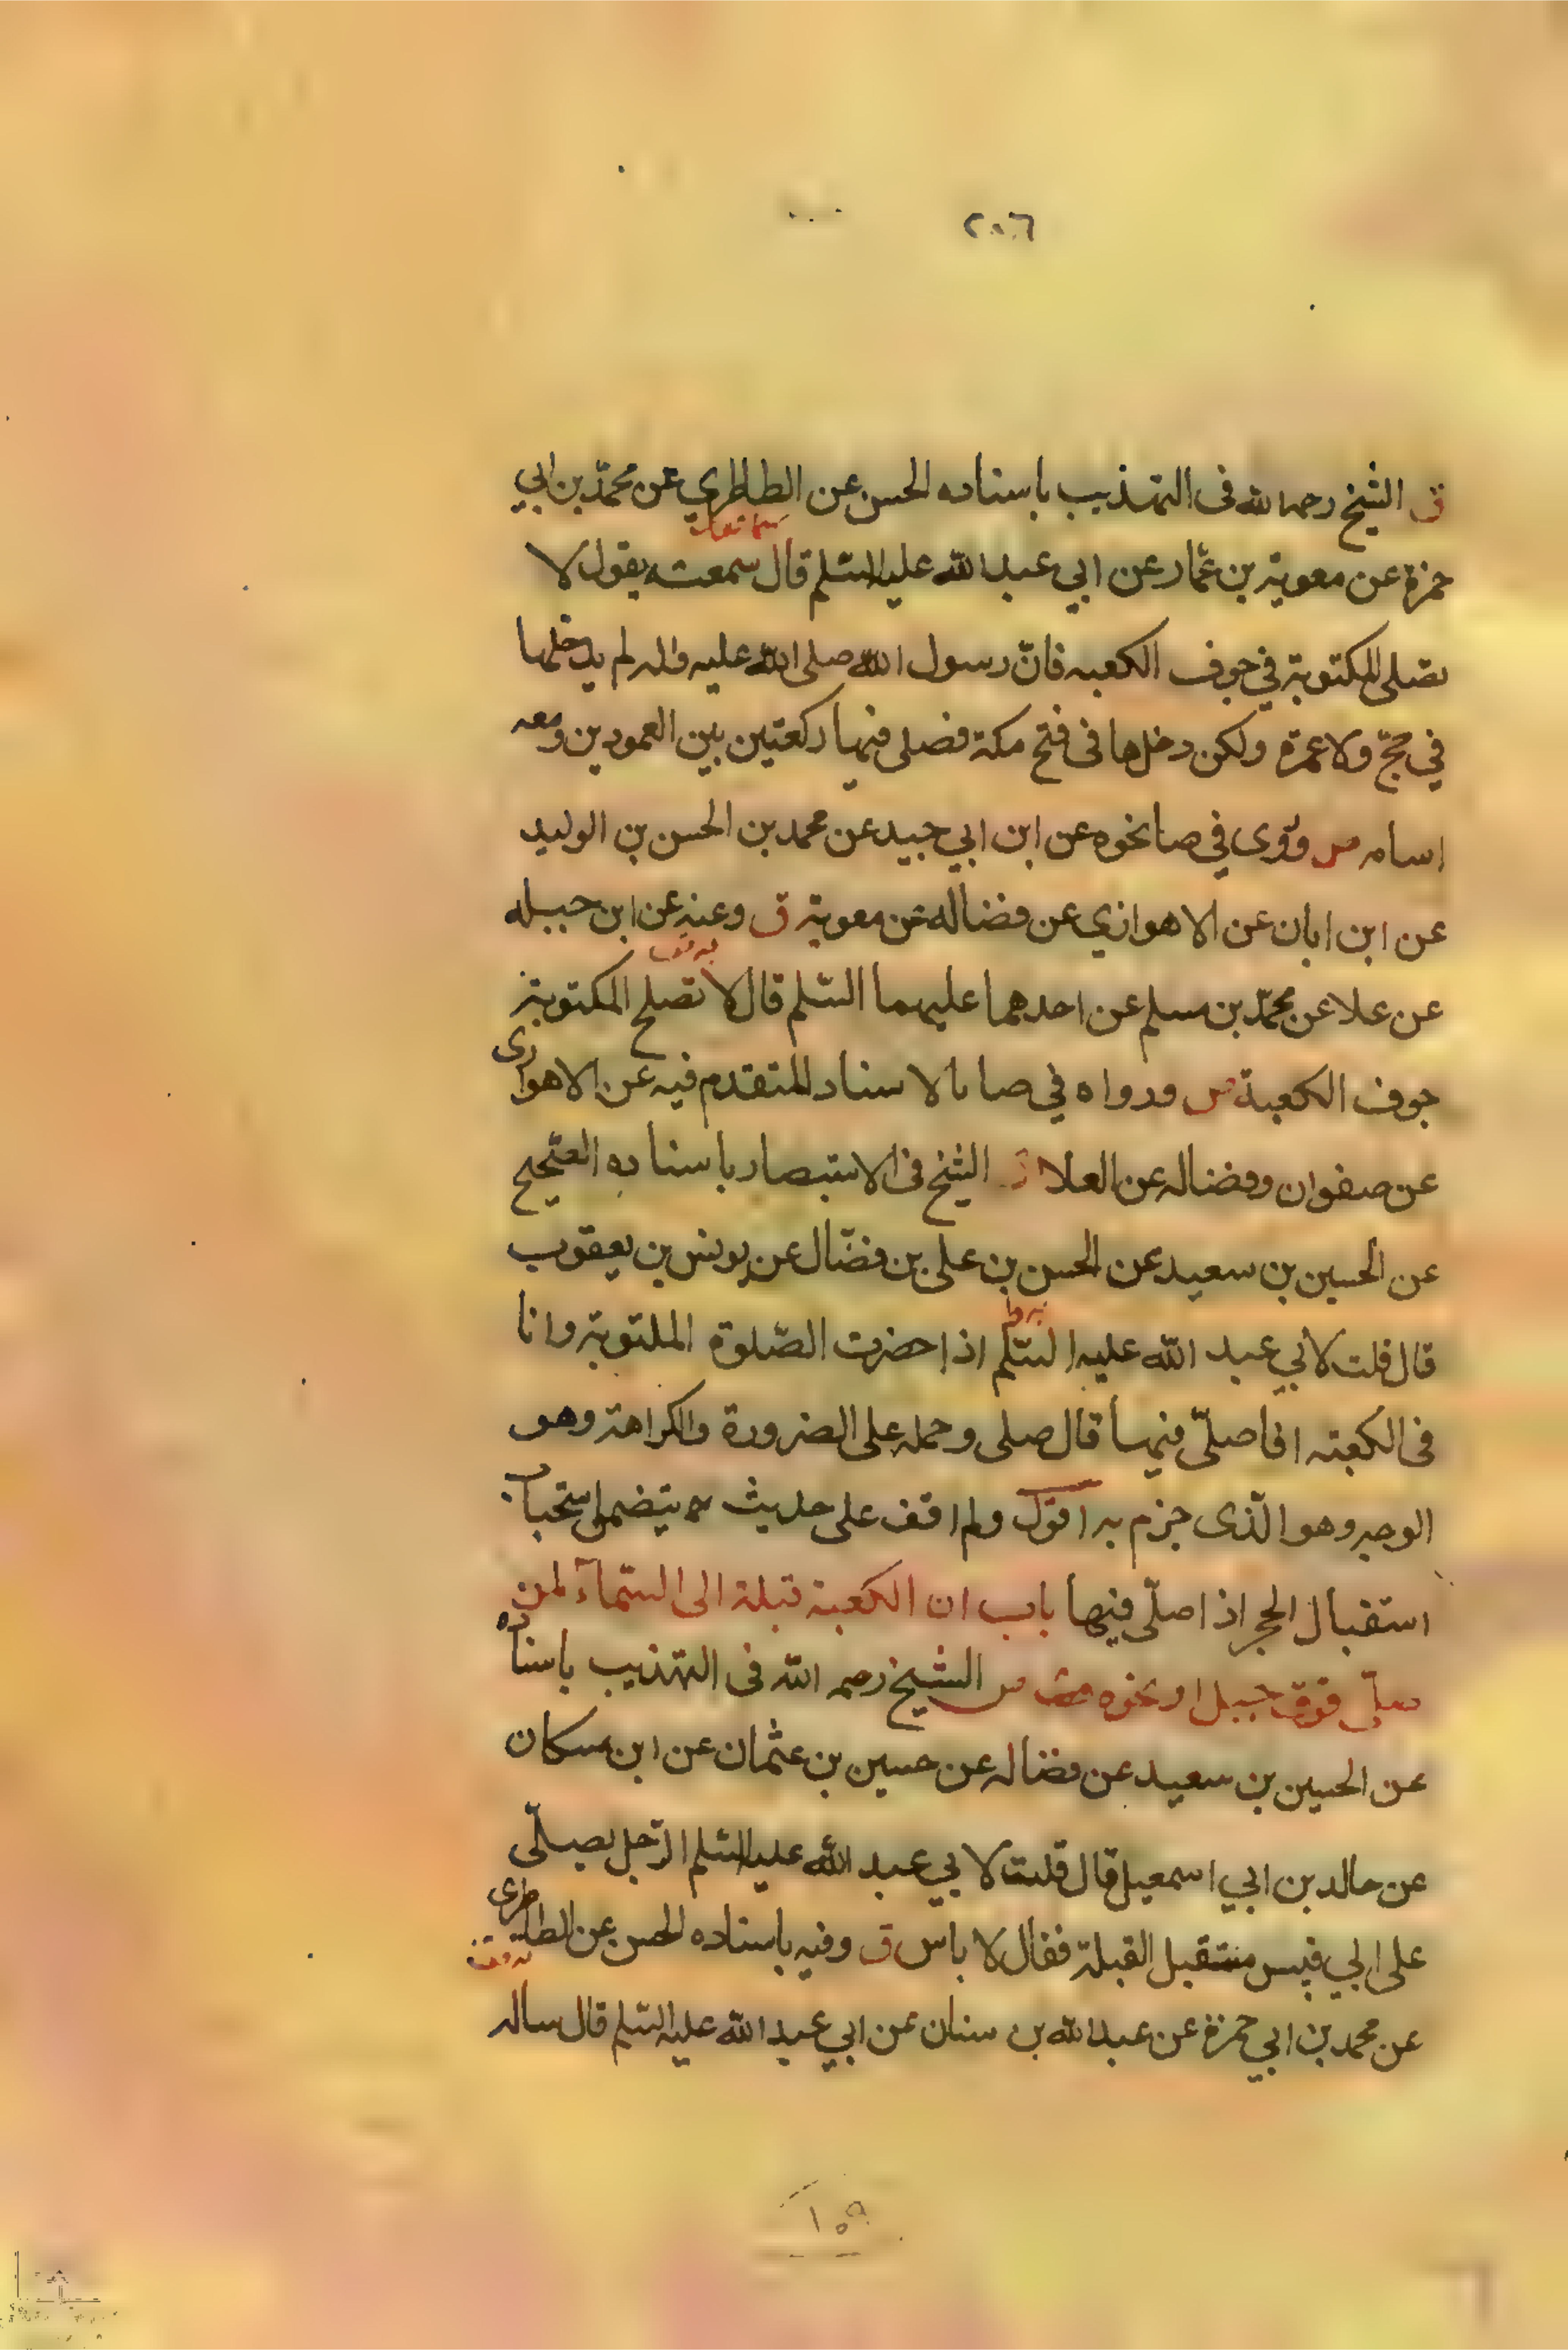 ٢٠٦
ق الشيخ رحمه الله فى التهذيب باسناده الحسن عن الطاطري عن محمّد بن ابي
حمزة عن معوية بن عمّار عن ابي عبد الله عليه السّلم قال سمعته يقول لا
تصلى المكتوبة في جوف الكعبه فانّ رسول الله صلى الله عليه واله لم يدخلها
في حجّ ولا عمرة ولكن دخلها فى فتح مكة فصلى فيها ركعتين بين العمودين ومعه
اسامه ص وروى في صا نحوه عن ابن ابي جيد عن محمد بن الحسن بن الوليد
عن ابن ابان عن الاهوازي عن فضاله عن معوية ق وعنه عن ابن جبله
عن علا عن محمّد بن مسلم عن احدهما عليهما السّلم قال لا تصلح المكتوبة
جوف الكعبة ص ورواه في صا بالاسناد المتقدم فيه عن الاهوازى
عن صفوان وفضاله عن العلا ق الشيخ فى الاستبصار باسناده الصّحيح
عن الحسين بن سعيد عن الحسن بن على بن فضّال عن يونس بن يعقوب
قال قلت لابي عبد الله عليه السّلم اذا حضرت الصّلوة المكتوبة وانا
فى الكعبة افاصلّي فيها قال صلى وحمله على الضرورة والكراهة وهو
الوجه وهو الّذى جزم به اقول ولم اقف على حديث يتضمن استحباب
استقبال الحجر اذا صلّى فيها باب ان الكعبة قبلة الى السّماء لمن
صلّى فوق جبل او نحوه ص الشيخ رحمه الله فى التهذيب باسناده
عن الحسين بن سعيد عن فضاله عن حسين بن عثمان عن ابن مسكان
عن خالد بن ابي اسمعيل قال قلت لابي عبد الله عليه السّلم الرّجل يصلّى
على ابي قبيس مستقبل القبلة فقال لا باس ق وفيه باسناده الحسن عن الطاطرى
عن محمد بن ابي حمزة عن عبد الله بن سنان عن ابي عبد الله عليه السّلم قال ساله